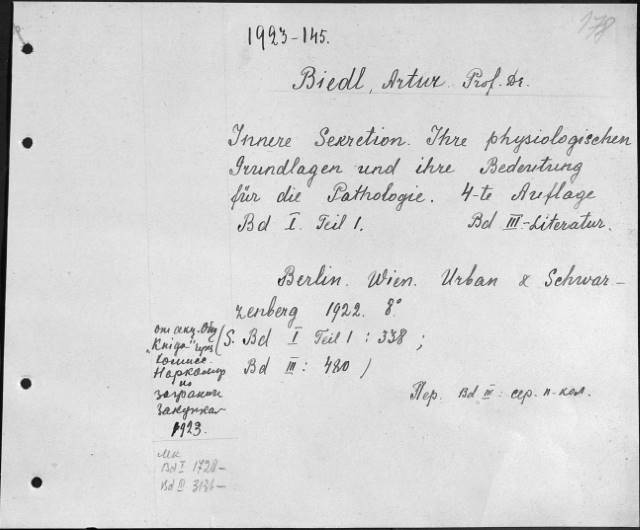 1923-145.
178
Biedl, Artur Prof. Dr.
Innere Sekretion. Ihre physiologischen
Grundlagen und ihre Bedeutung
für die Pathologie. 4-te Auflage
Bd I. Teil 1. Bd III-Literatur.
Berlin. Wien. Urban & Schwar-
zenberg 1922. 8°
(S. Bd I Teil 1: 338;
Bd III: 480)
Пер. Bd III: сер. п-кол.
от акц. Общ
„Книга" через
Комисс.
по
закупкам
1923.
Мк
Bd I 1728-
Bd III